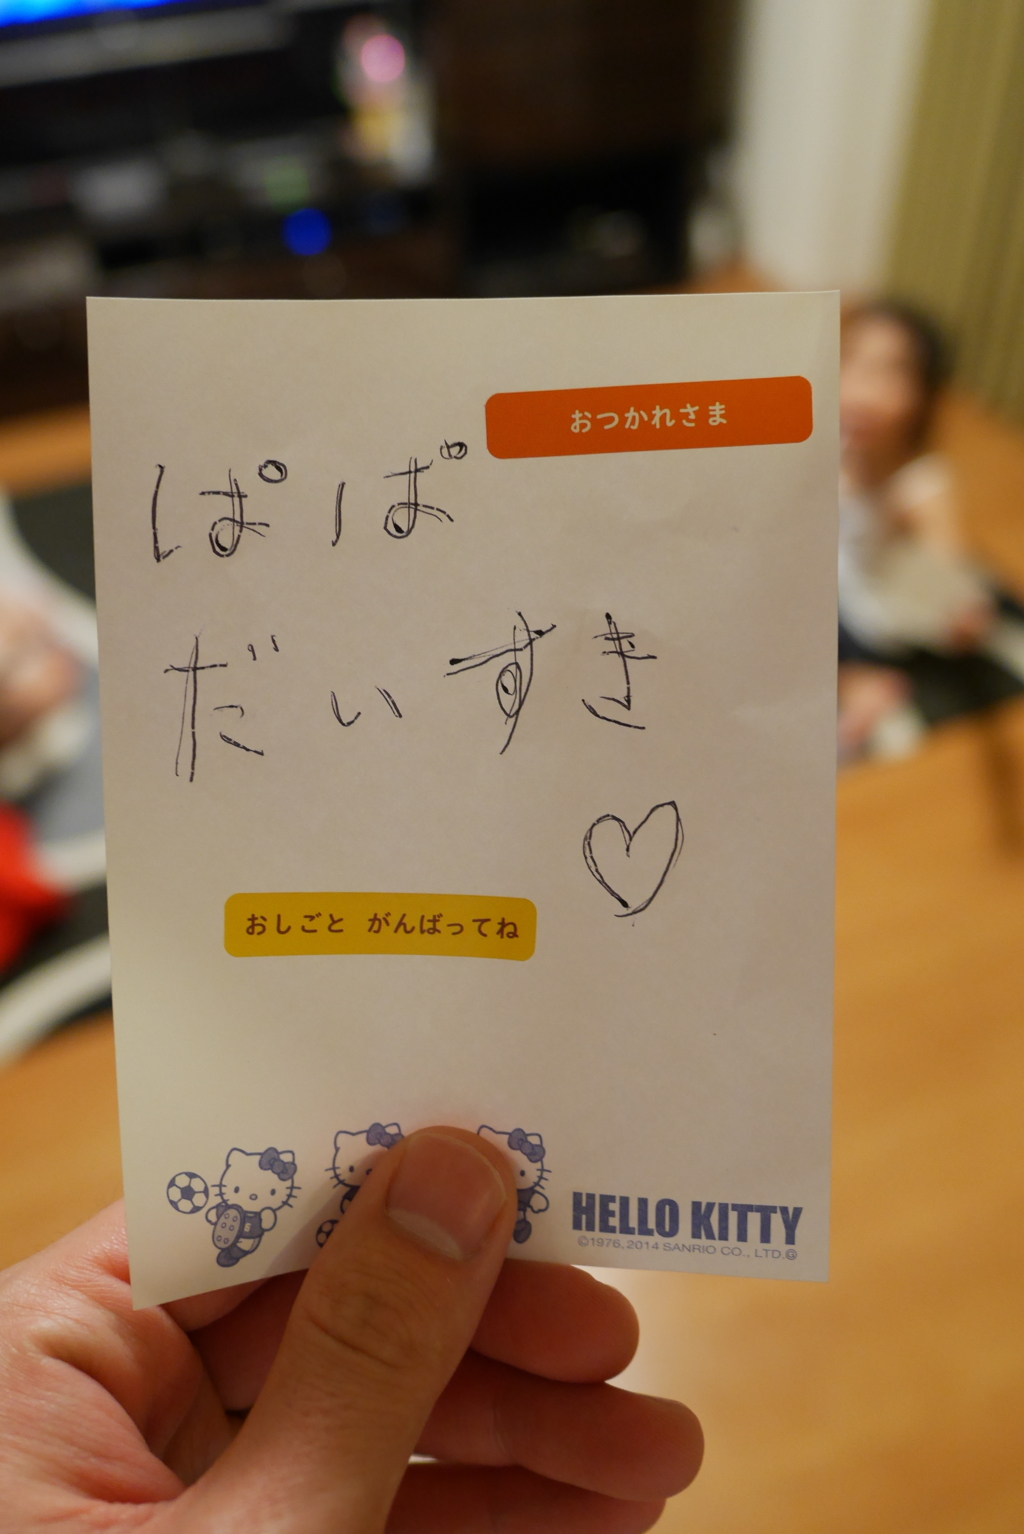 おつかれさま
ぱぱ
だいすき
♡
おしごと がんばってね
HELLO KITTY
©1976, 2014 SANRIO CO., LTD.@